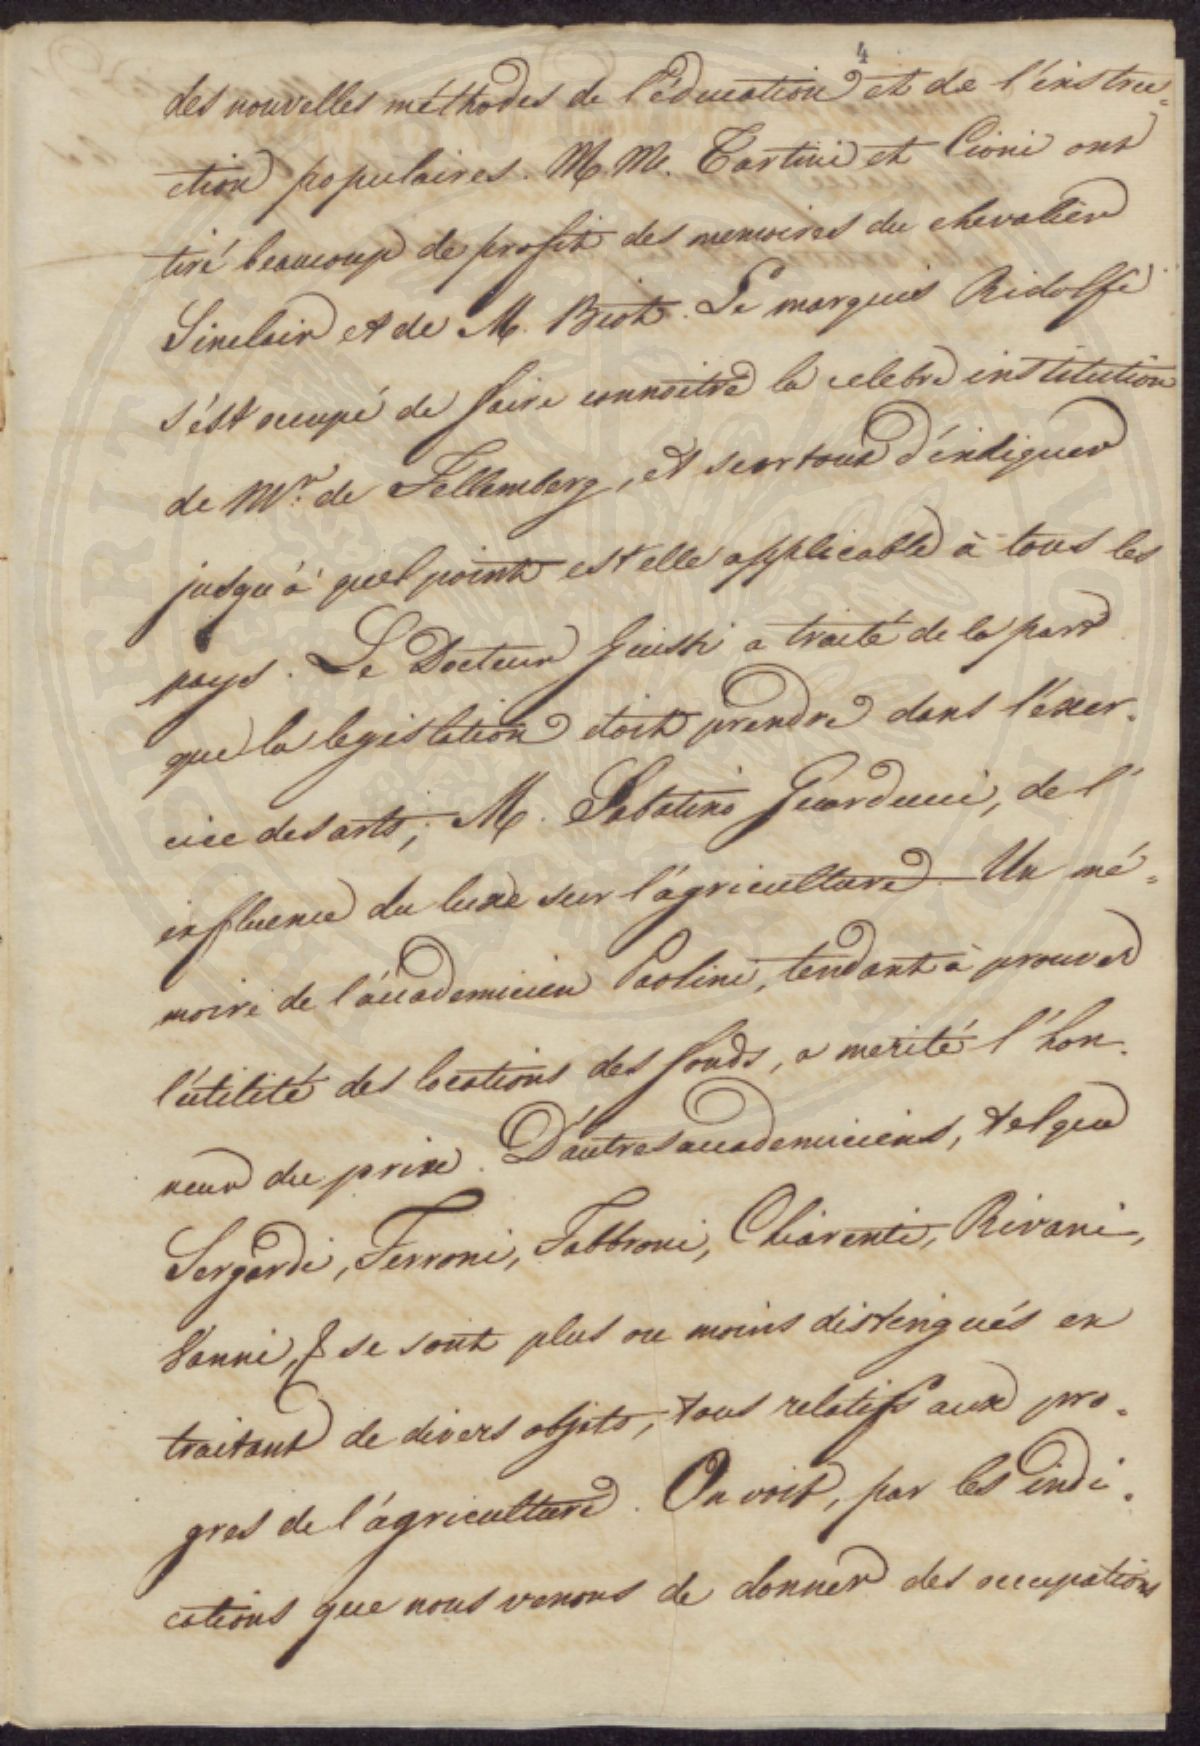 4
des nouvelles méthodes de l'éducation et de l'instru=
ction populaires. M.M. Tartini et Cioni ont
tiré beaucoup de profit des memoires du chevalier
Sinclair et de M. Biot. Le marquis Ridolfi
s'est occupé de faire connoitre la celebre institution
de Mr. de Fellemberg, et surtout d'indiquer
jusqu'à quel point est elle applicable à tous les
pays. Le Docteur Giusti a traité de la part
que la legislation doit prendre dans l'exer-
cice des arts; M. Sabatino Guarducci, de l'
influence du luxe sur l'agriculture. Un mé=
moire de l'académicien Paolini, tendant à prouver
l'utilité des locations des fonds, a merité l'hon-
neur du prix. D'autres academiciens, tel que
Sergardi, Ferroni, Fabbroni, Chiarenti, Rivani,
Vanni, & se sont plus ou moins distingués en
traitant de divers objets, tous relatifs aux pro-
gres de l'agriculture. On voit, par les indi-
cations que nous venons de donner des occupations